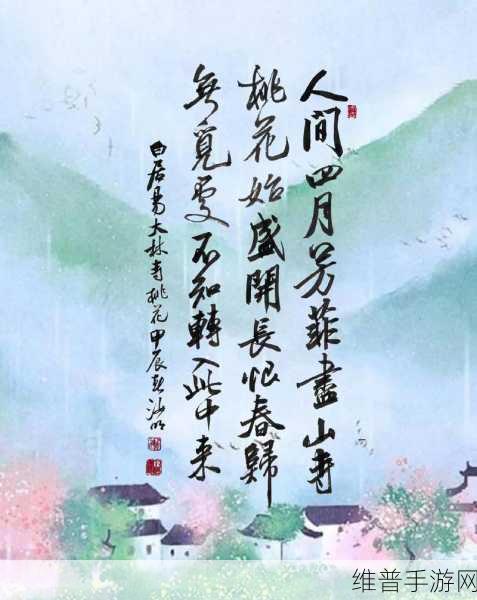 人间四月芳菲盡山寺
桃花始盛開長恨春歸
無覓處不知轉入此中来
白居易大林寺桃花甲辰
维普手游网